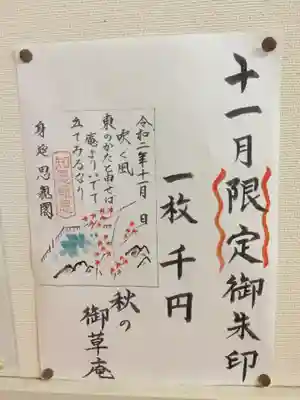 十一月限定御朱印
一枚千円
秋の
御草庵
令和二年十一月 日
吹く風
東のかたと申せば
庵よりいでて
立てみるなり
知恩報恩
身延思親閣